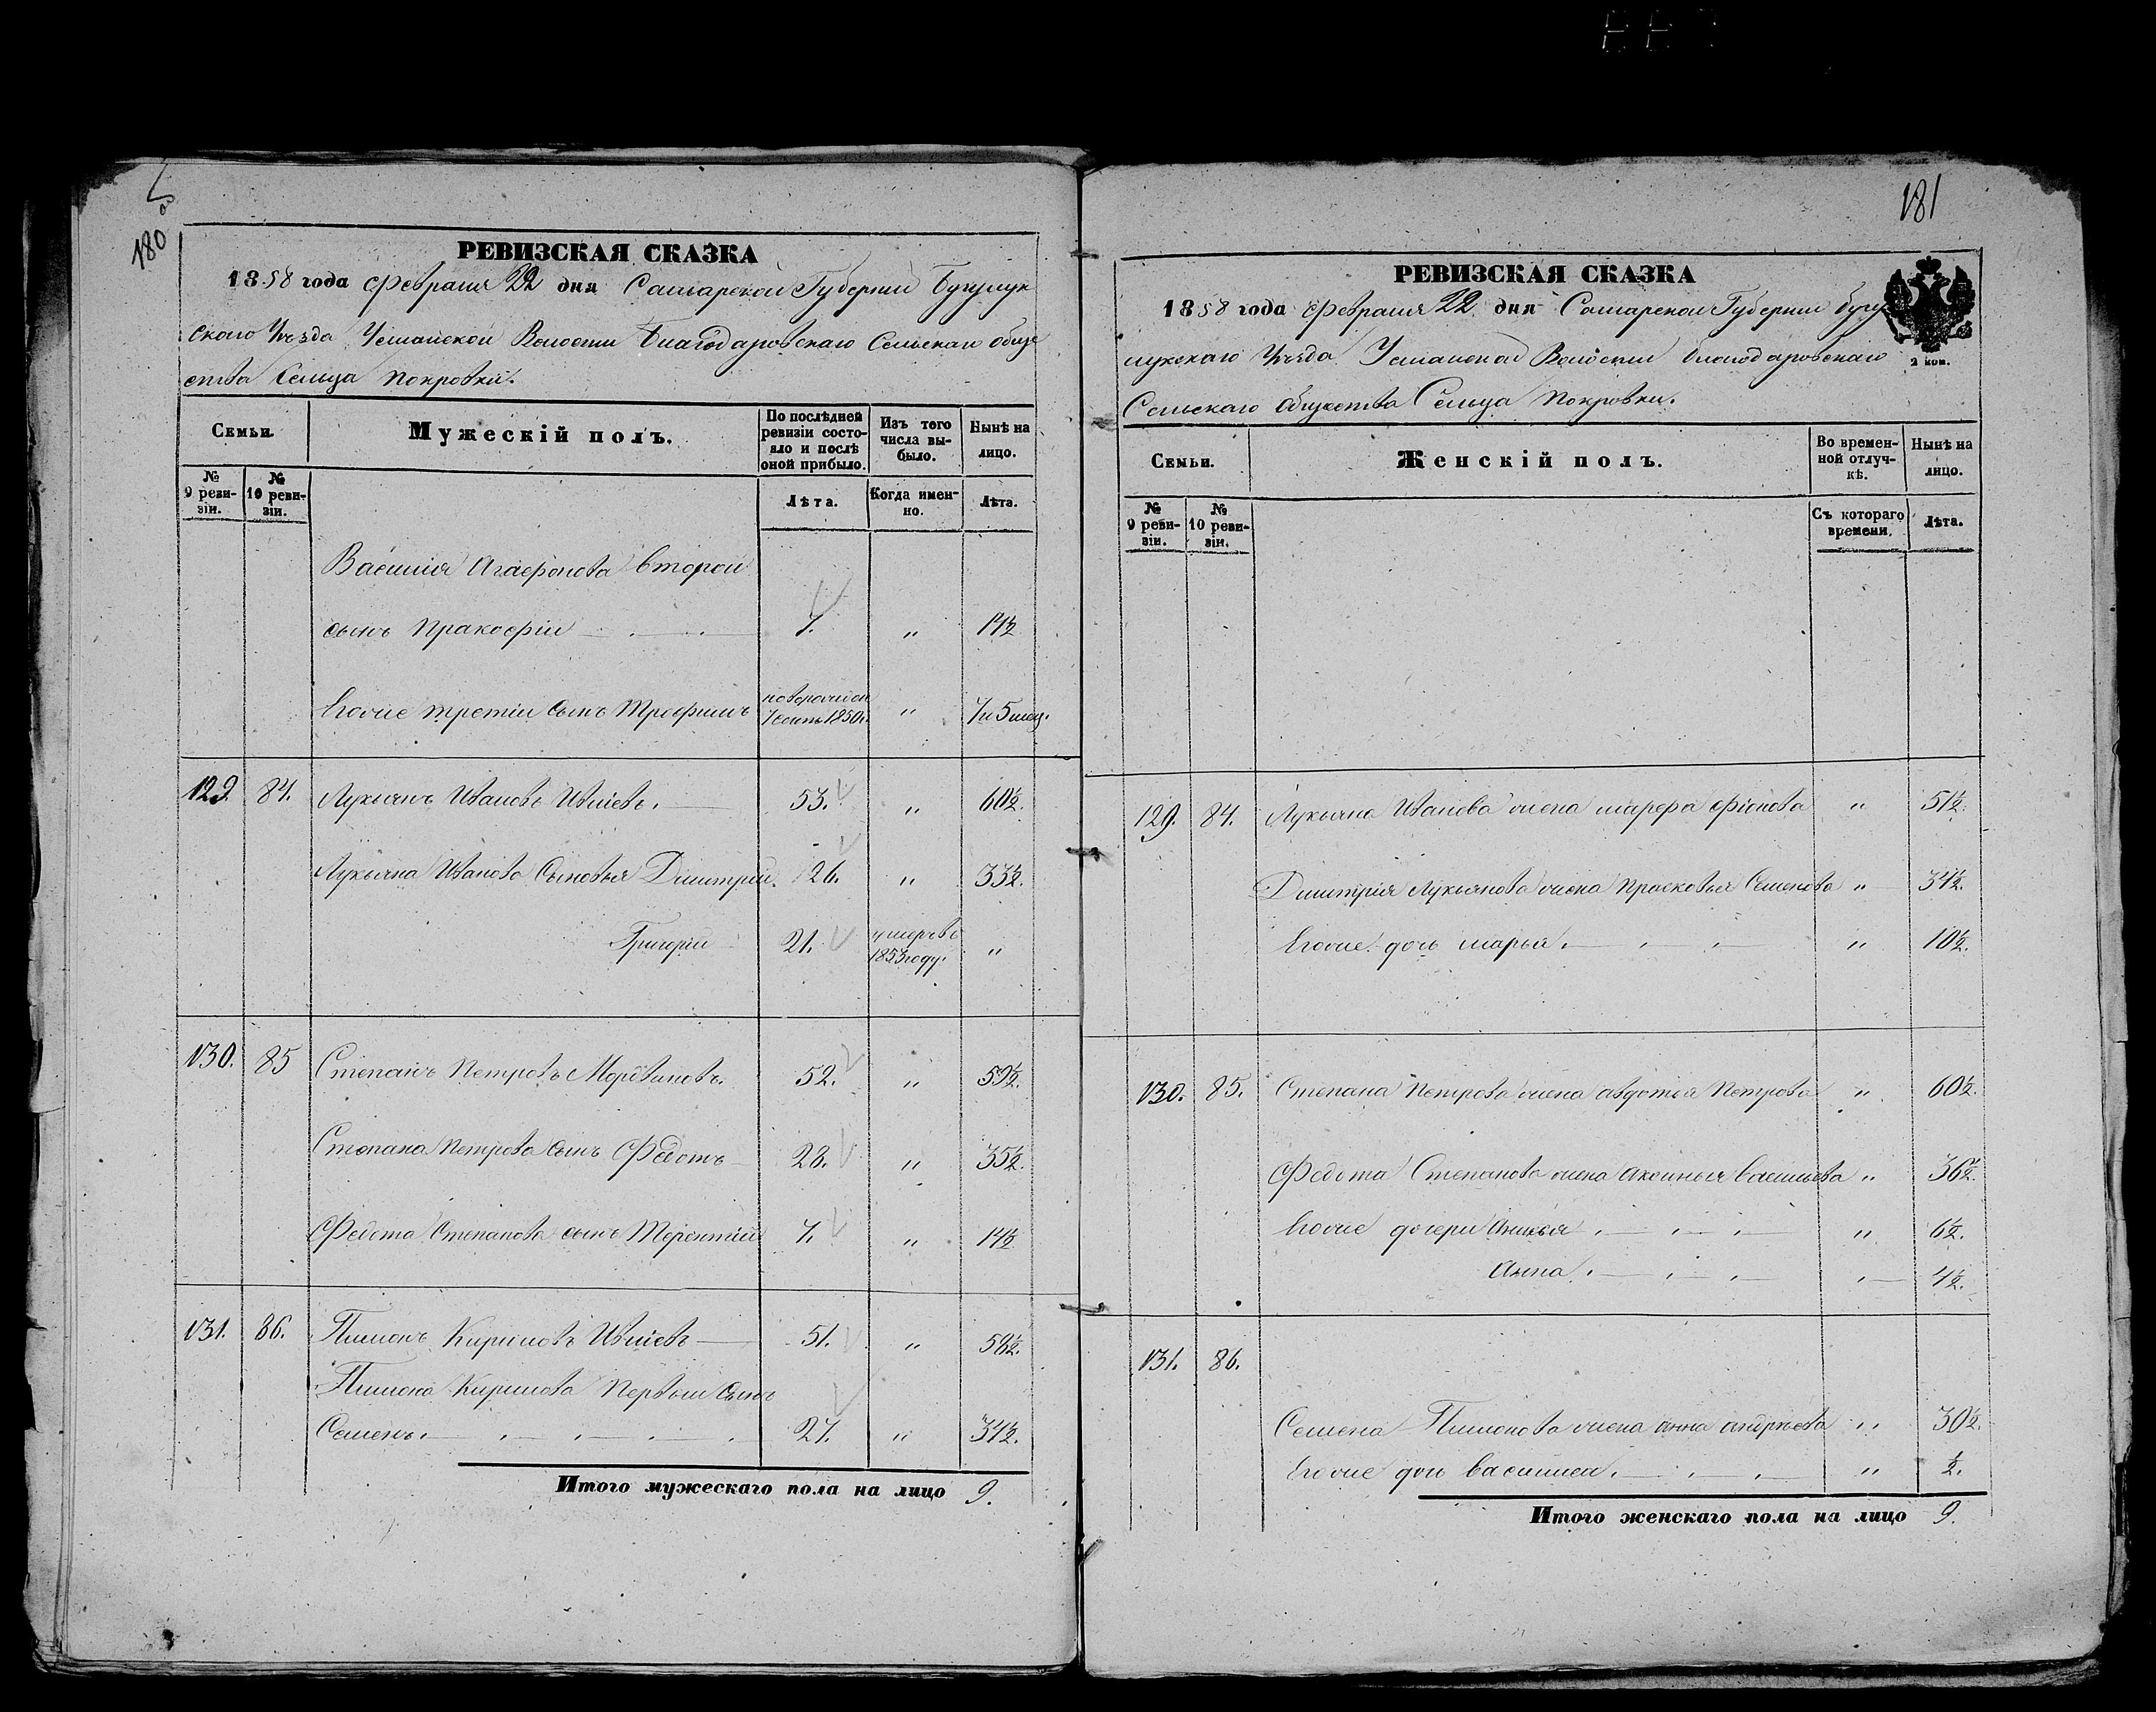 180 об
РЕВИЗСКАЯ СКАЗКА
1858 года февраля 22 дня Самарской Губернии Бугульми
скаго Уѣзда Благодаровскаго Сельскаго обще
ства Сельца Покровки.
Семьи.
Мужескій полъ.
По послѣдней ревизіи состояло и послѣ оной прибыло.
Изъ того числа выбыло.
Нынѣ на лицо.
№ 9 ревизіи.
№ 10 ревизіи.
Лѣта.
Когда именно.
Лѣта.
Василія Агафонова второй
сынъ Пракофій 7. " 14½
Егоже третій сынъ Трофимъ новорожден 1850г. " 7 и 5 мец.
129. 84. Лукьянъ Ивановъ Ивлиевъ. 53. " 60½.
Лукьяна Иванова Сыновья Димитрий. 26. " 33½.
Григорій 21. умеръ въ 1853 году. "
130. 85 Степанъ Петровъ Мордвиновъ. 52. " 59½.
Степана Петрова сынъ Федотъ 28. " 35½.
Федота Степанова сынъ Терентий 7. " 14½
131. 86. Пимонъ Кириловъ Ивлиевъ 51. " 58½.
Пимона Кирилова Первый сынъ
Семенъ. 27. " 34½.
Итого мужескаго пола на лицо 9.
181
РЕВИЗСКАЯ СКАЗКА
1858 года февраля 22 дня Самарской Губернии бугу
Уѣзда Благодаровскаго
Сельскаго общества Сельца Покровки.
2 коп.
Семьи.
Женскій полъ.
Во временной отлучкѣ.
Нынѣ на лицо.
№ 9 ревизіи.
№ 10 ревизіи.
Съ котораго времени.
Лѣта.
129. 84. Лукьяна Иванова жена марфа фионова " 51½.
Димитрія Лукьянова жена Прасковья Семенова " 34½.
Егоже дочь марья. " 10½.
130. 85. Степана Петрова жена авдотья Петрова " 60½.
Федота Степанова жена аксинья Васильева " 36½.
Егоже дочери " 6½.
Анна. 4½.
131. 86.
Семена Пимонова жена анна андрѣева " 30½.
Егоже дочь василиса. " ½.
Итого женскаго пола на лицо 9.